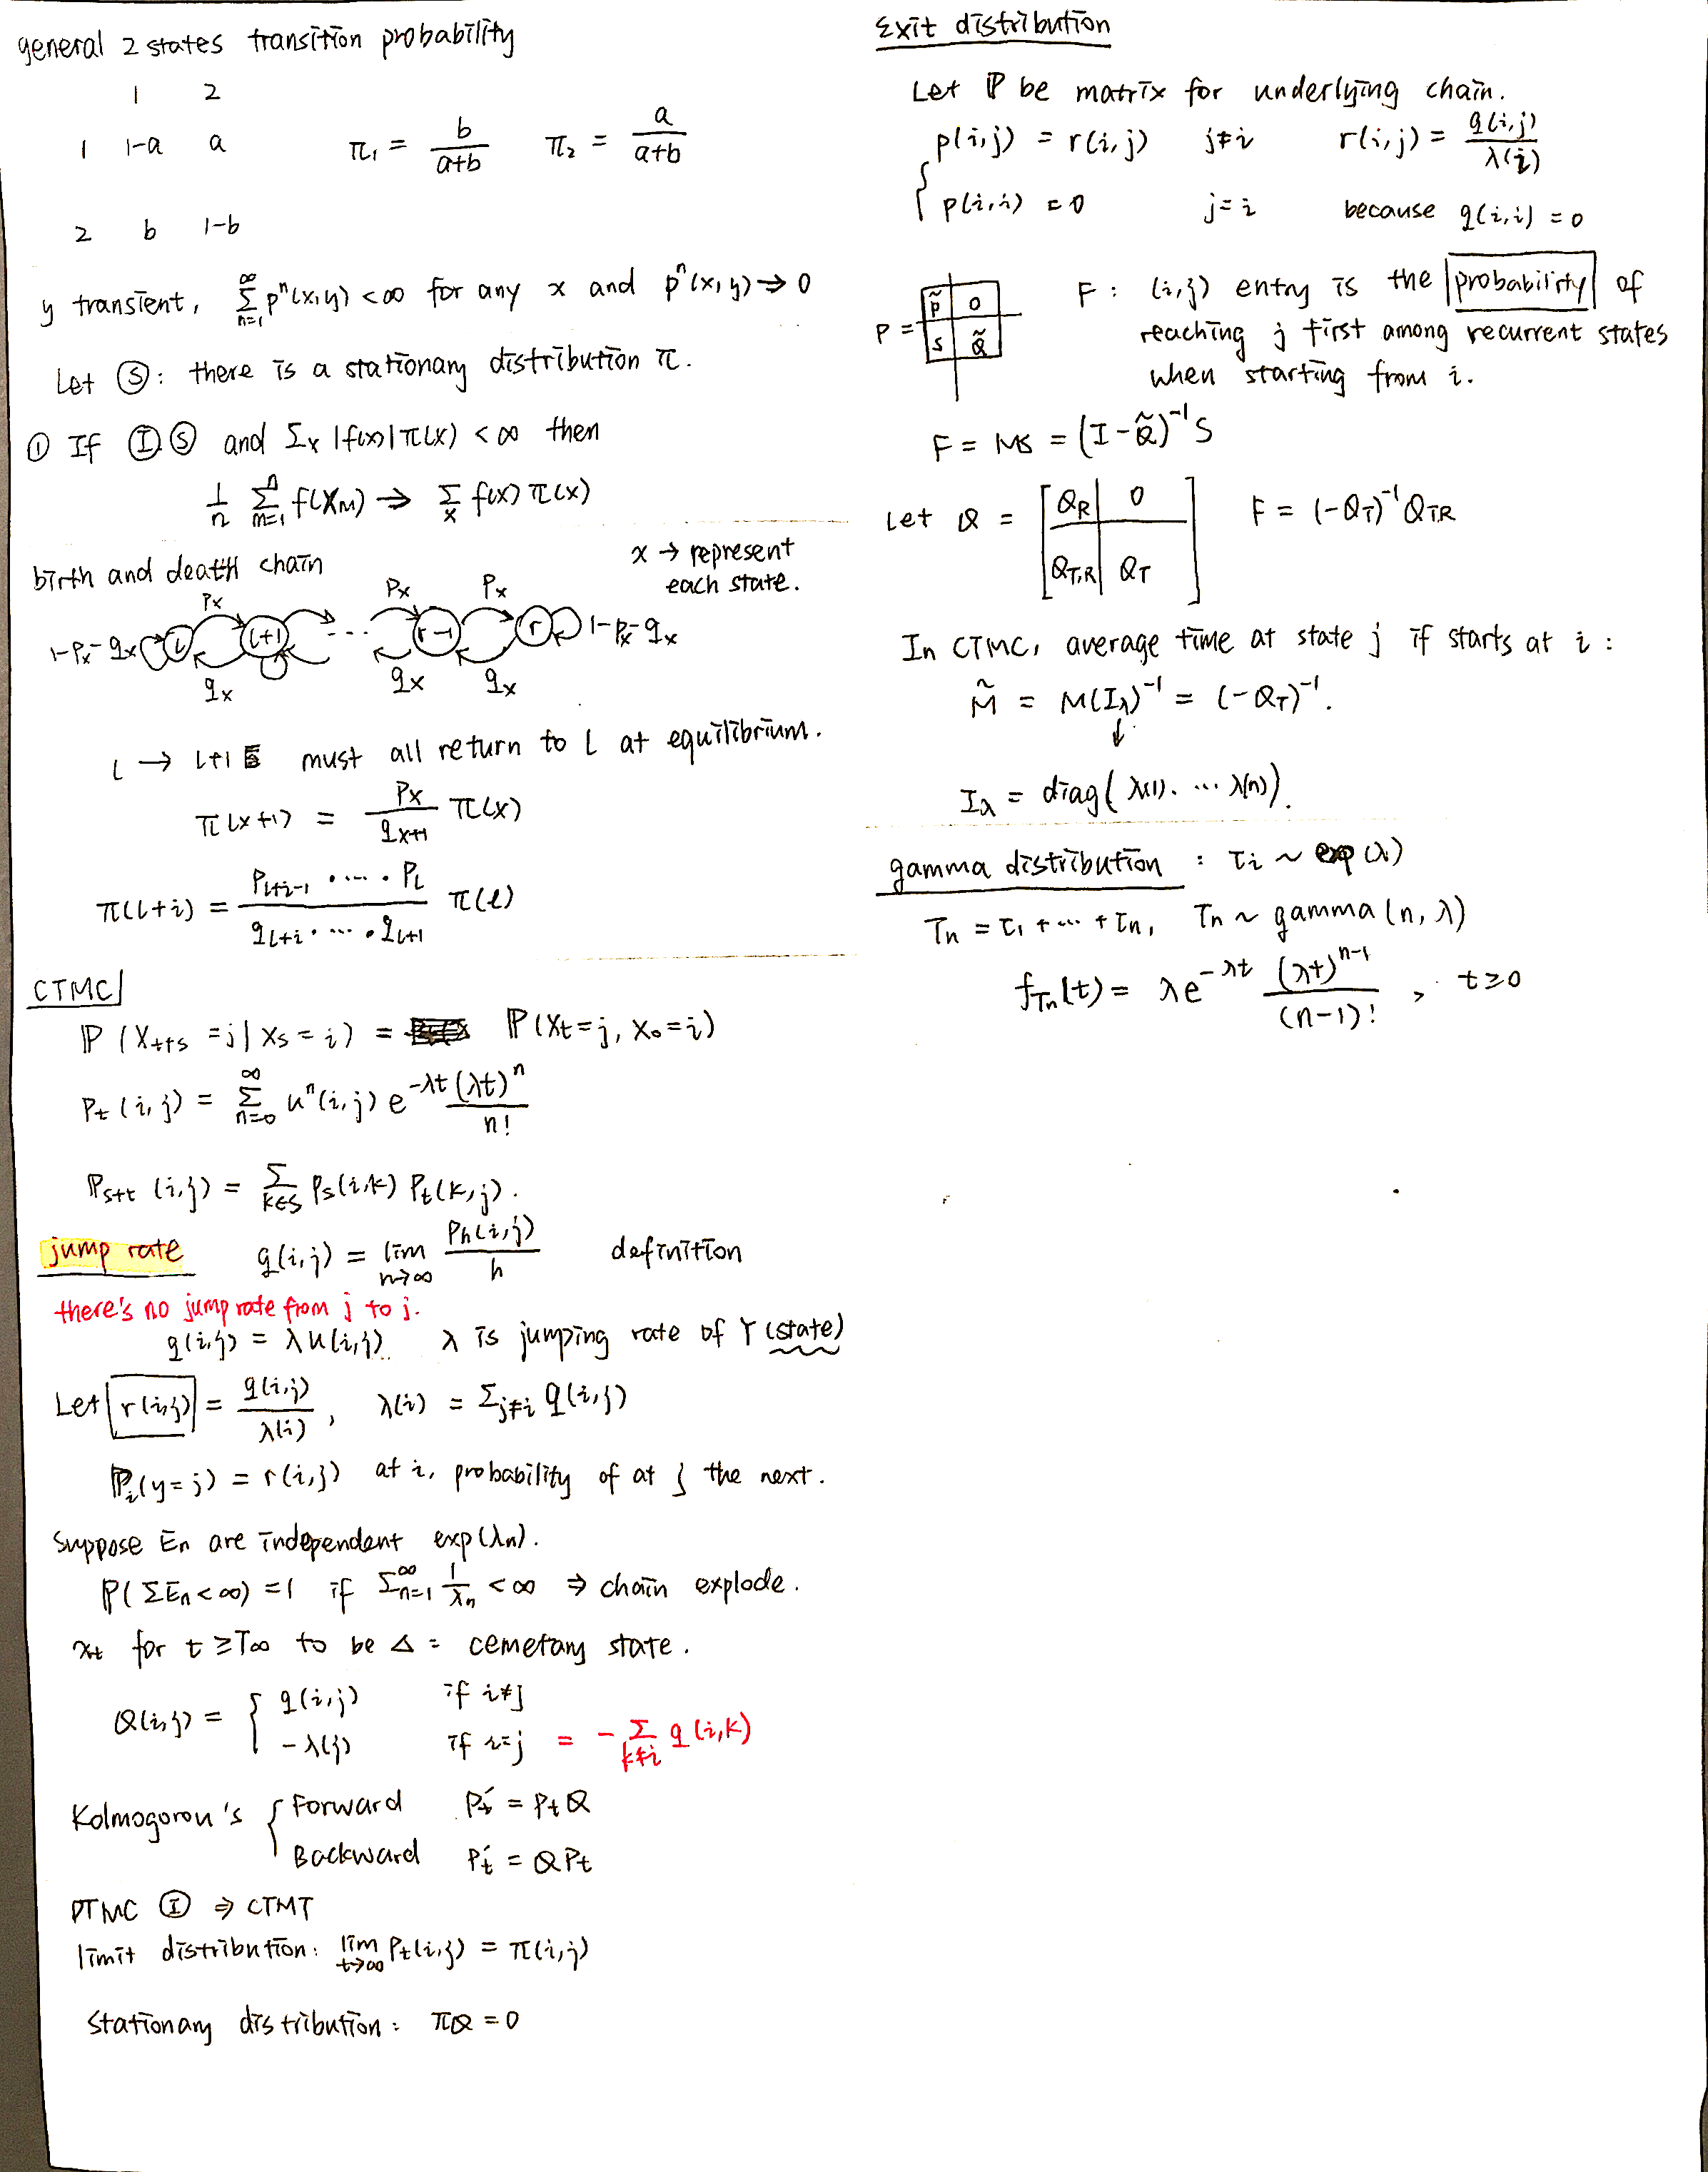 general 2 states transition probability
1 2
1 1-a a π₁ = b/(a+b) π₂ = a/(a+b)
2 b 1-b
y transient, Σ_{n=1}^∞ pⁿ(x,y) < ∞ for any x and pⁿ(x,y) → 0
Let Ⓢ: there is a stationary distribution π.
① If Ⓘ Ⓢ and Σx |f(x)| π(x) < ∞ then
1/n Σ_{m=1}^n f(Xm) → Σ_x f(x) π(x)
birth and death chain
x → represent
each state.
Px Px Px
1-Px-qx l l+1 ... r-1 r 1-Px-qx
qx qx qx
l → l+1 must all return to l at equilibrium.
π(x+1) = Px/q_{x+1} π(x)
π(l+i) = (P_{l+i-1} · ... · P_l)/(q_{l+i} · ... · q_{l+1}) π(l)
CTMC
ℙ(X_{t+s} = j | X_s = i) = ℙ(X_t = j, X_0 = i)
P_t(i,j) = Σ_{n=0}^∞ uⁿ(i,j) e^{-λt} (λt)ⁿ/n!
P_{s+t}(i,j) = Σ_{k∈S} P_s(i,k) P_t(k,j).
jump rate q(i,j) = lim_{n→∞} P_h(i,j)/h definition
there's no jump rate from j to j.
q(i,j) = λu(i,j) λ is jumping rate of Y (state)
Let r(i,j) = q(i,j)/λ(i), λ(i) = Σ_{j≠i} q(i,j)
ℙ_i(y=j) = r(i,j) at i, probability of at j the next.
suppose En are independent exp(λn).
ℙ(ΣEn<∞) = 1 if Σ_{n=1}^∞ 1/λn < ∞ ⇒ chain explode.
Xt for t ≥ T∞ to be Δ = cemetary state.
Q(i,j) = { q(i,j) if i≠j
-λ(j) if i=j = -Σ_{k≠i} q(i,k)
Kolmogorov's { Forward P_t' = P_t Q
Backward P_t' = Q P_t
DTMC Ⓘ ⇒ CTMT
limit distribution: lim_{t→∞} P_t(i,j) = π(i,j)
Stationary distribution: πQ = 0
Exit distribution
Let ℙ be matrix for underlying chain.
{ p(i,j) = r(i,j) j≠i r(i,j) = q(i,j)/λ(i)
p(i,i) = 0 j=i because q(i,i) = 0
P = P̃ 0
S Q̃
F: (i,j) entry is the probability of
reaching j first among recurrent states
when starting from i.
F = MS = (I-Q̃)⁻¹ S
Let Q = [ Q_R 0
Q_{T,R} Q_T ] F = (-Q_T)⁻¹ Q_{TR}
In CTMC, average time at state j if starts at i:
M̃ = M(I_λ)⁻¹ = (-Q_T)⁻¹.
↓
I_λ = diag(λ(1). ... λ(n)).
gamma distribution : τi ~ exp(λ)
Tn = τ₁ + ... + τn, Tn ~ gamma(n, λ)
f_{Tn}(t) = λe^{-λt} (λt)^{n-1}/(n-1)!, t≥0